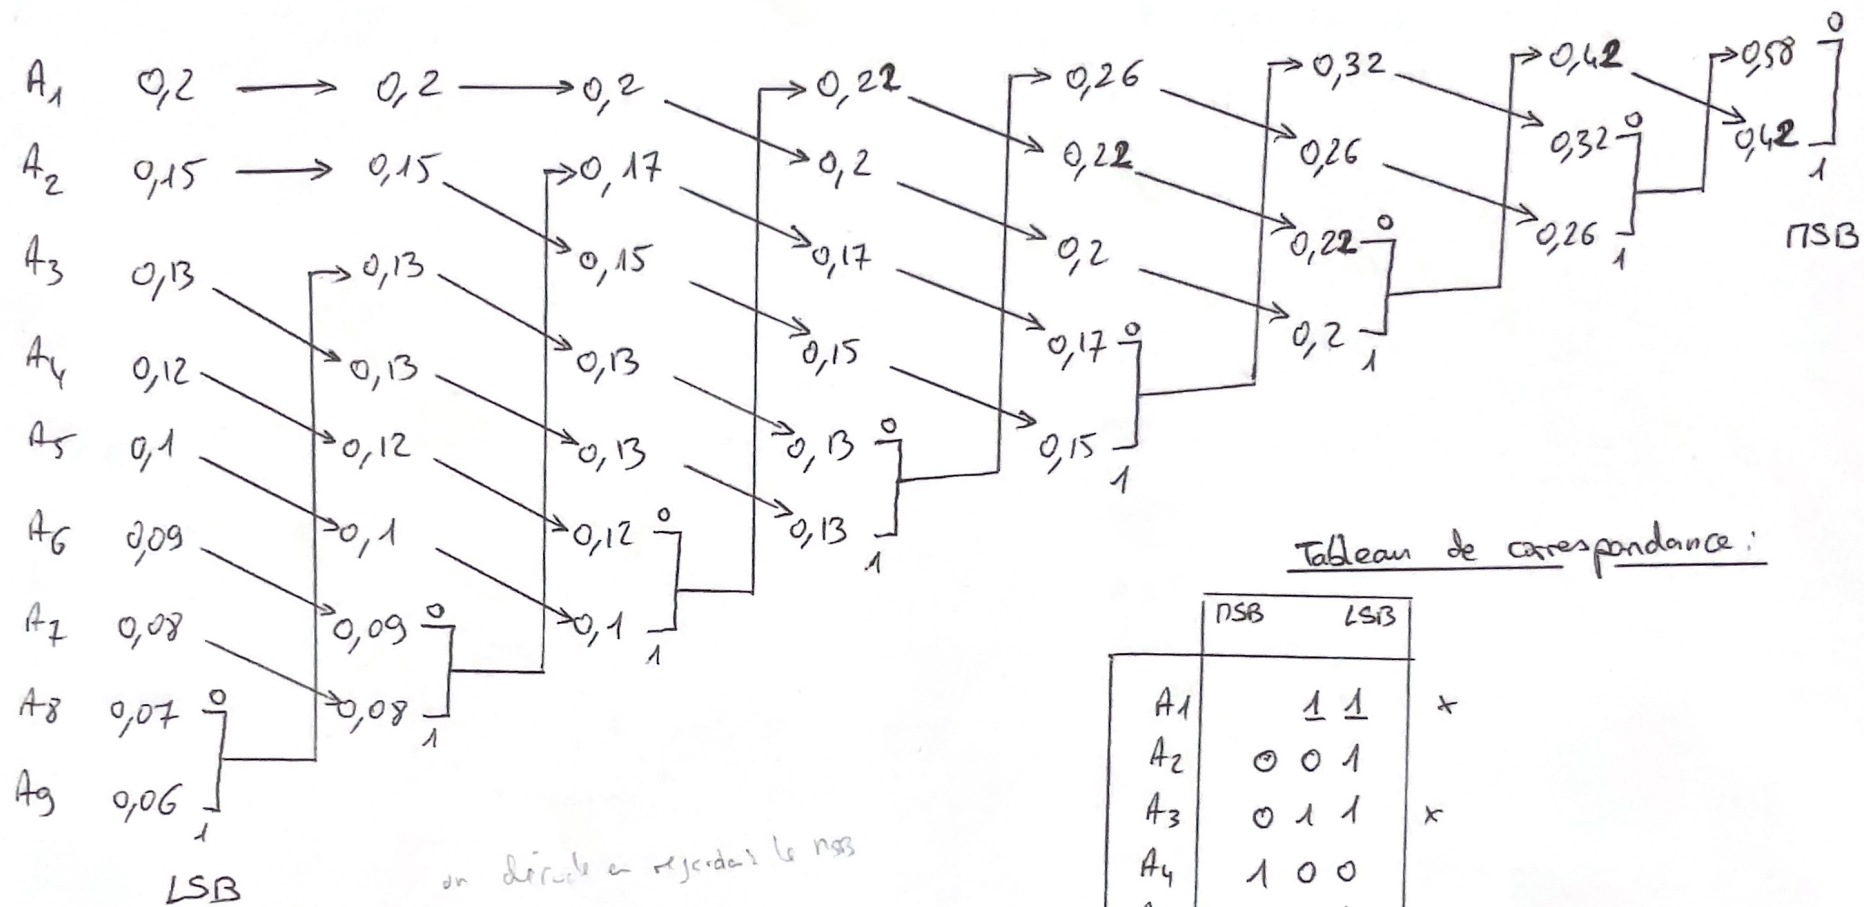 A1 0,2 0,2 0,2 0,22 0,26 0,32 0,42 0,58 0
A2 0,15 0,15 0,17 0,2 0,22 0,26 0,32 0 0,42 1
A3 0,13 0,13 0,15 0,17 0,2 0,22 0 0,26 1 MSB
A4 0,12 0,13 0,13 0,15 0,17 0 0,2 1
A5 0,1 0,12 0,13 0,13 0 0,15 1
A6 0,09 0,1 0,12 0 0,13 1
A7 0,08 0,09 0 0,1 1
A8 0,07 0 0,08 1
A9 0,06 1
LSB
on en regardant le MSB
Tableau de correspondance :
MSB LSB
A1 1 1 x
A2 0 0 1
A3 0 1 1 x
A4 1 0 0